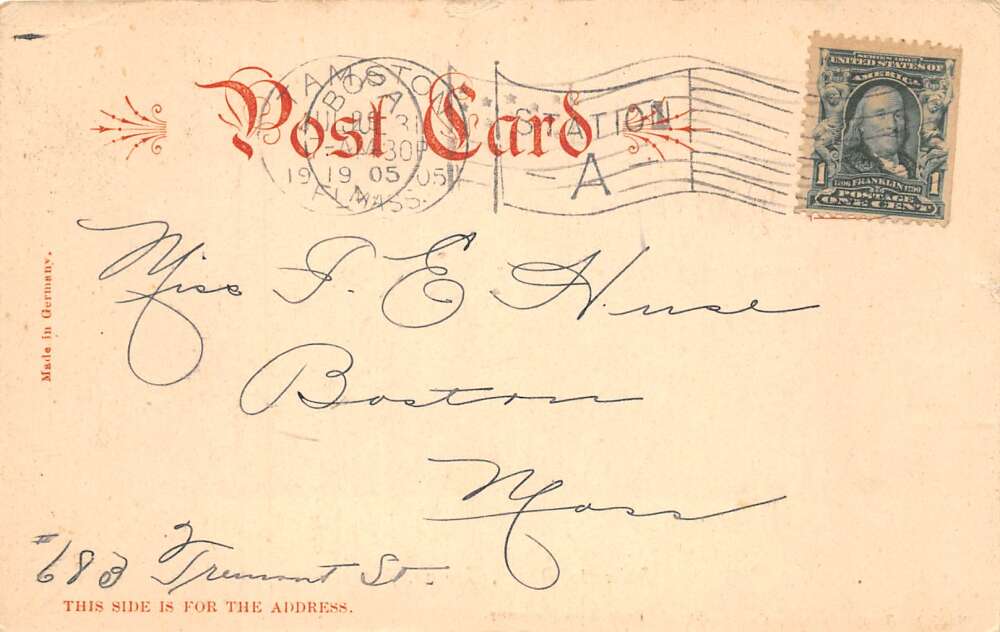 Post Card
STATION
A
19 05
MASS.
SERIES 1902
UNITED STATES OF
AMERICA
1 1706 FRANKLIN 1790 1
POSTAGE
ONE CENT
Made in Germany.
Miss F. E. Huse
Boston
Mass
#683 Tremont St.
THIS SIDE IS FOR THE ADDRESS.